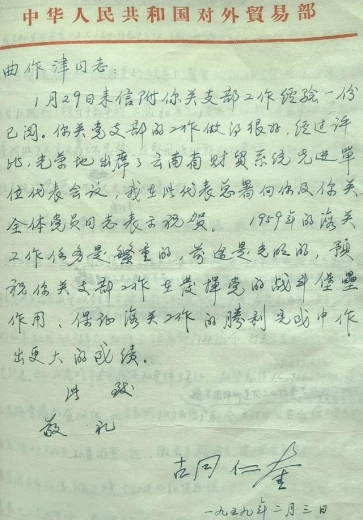 中华人民共和国对外贸易部
曲作津同志：
1月29日来信附你关支部工作经验一份
已阅。你关党支部的工作做的很好，经过评
比，光荣地出席了云南省财贸系统先进单
位代表会议，我在此代表总署向你及你关
全体党员同志表示祝贺。 1959年的海关
工作任务是繁重的，前途是光明的，预
祝你关支部工作在发挥党的战斗堡壘
作用、保证海关工作的勝利完成中作
出更大的成绩。
此致
敬礼
一九五九年二月三日